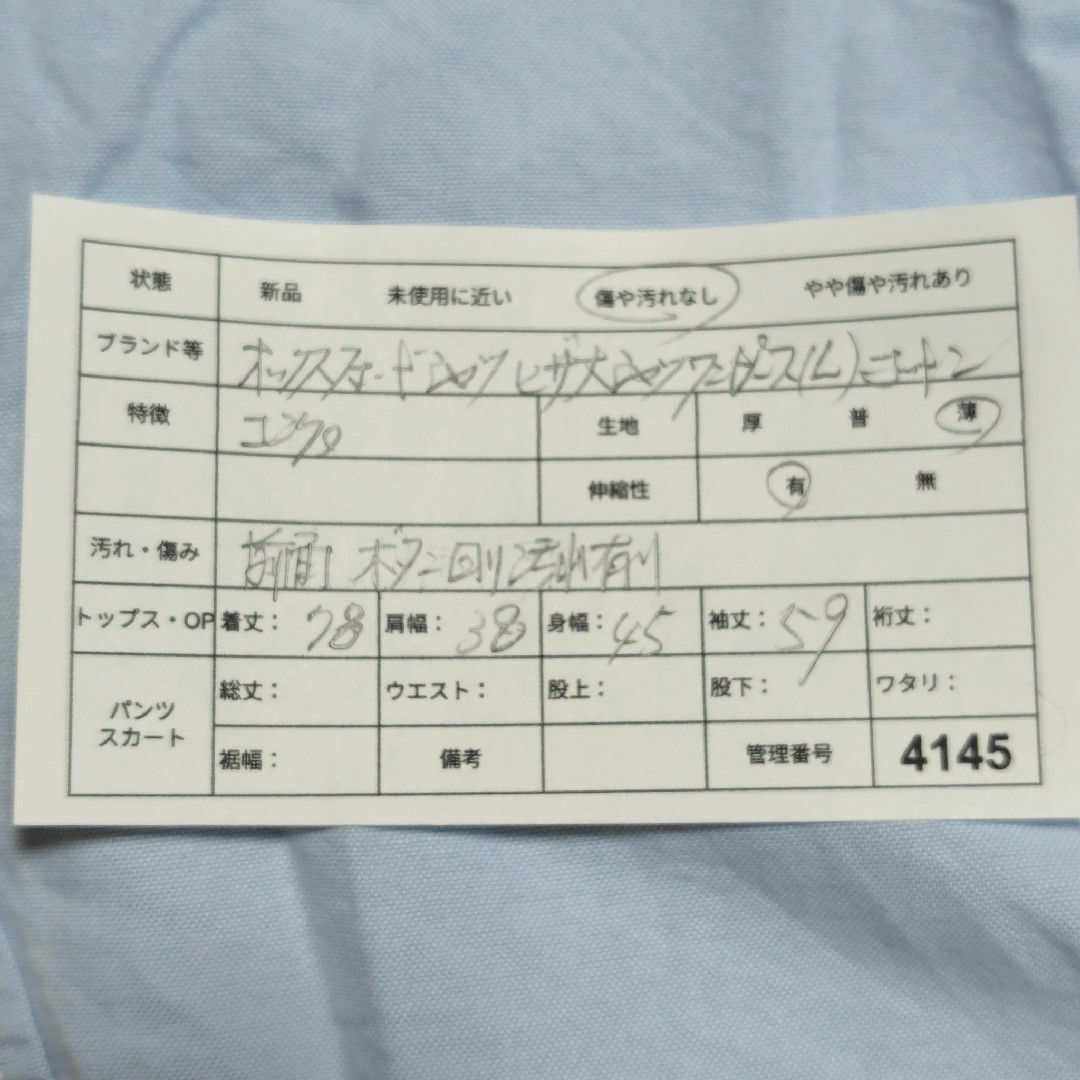 状態 新品 未使用に近い 傷や汚れなし やや傷や汚れあり
ブランド等 オックスフォードシャツ ヒザ丈シャツワンピース(L) コットン
特徴 生地 厚 普 薄
伸縮性 有 無
汚れ・傷み 前面 ボタン回り汚れ有り
トップス・OP 着丈: 78 肩幅: 38 身幅: 45 袖丈: 59 裄丈:
パンツ スカート 総丈: ウエスト: 股上: 股下: ワタリ:
裾幅: 備考 管理番号 4145